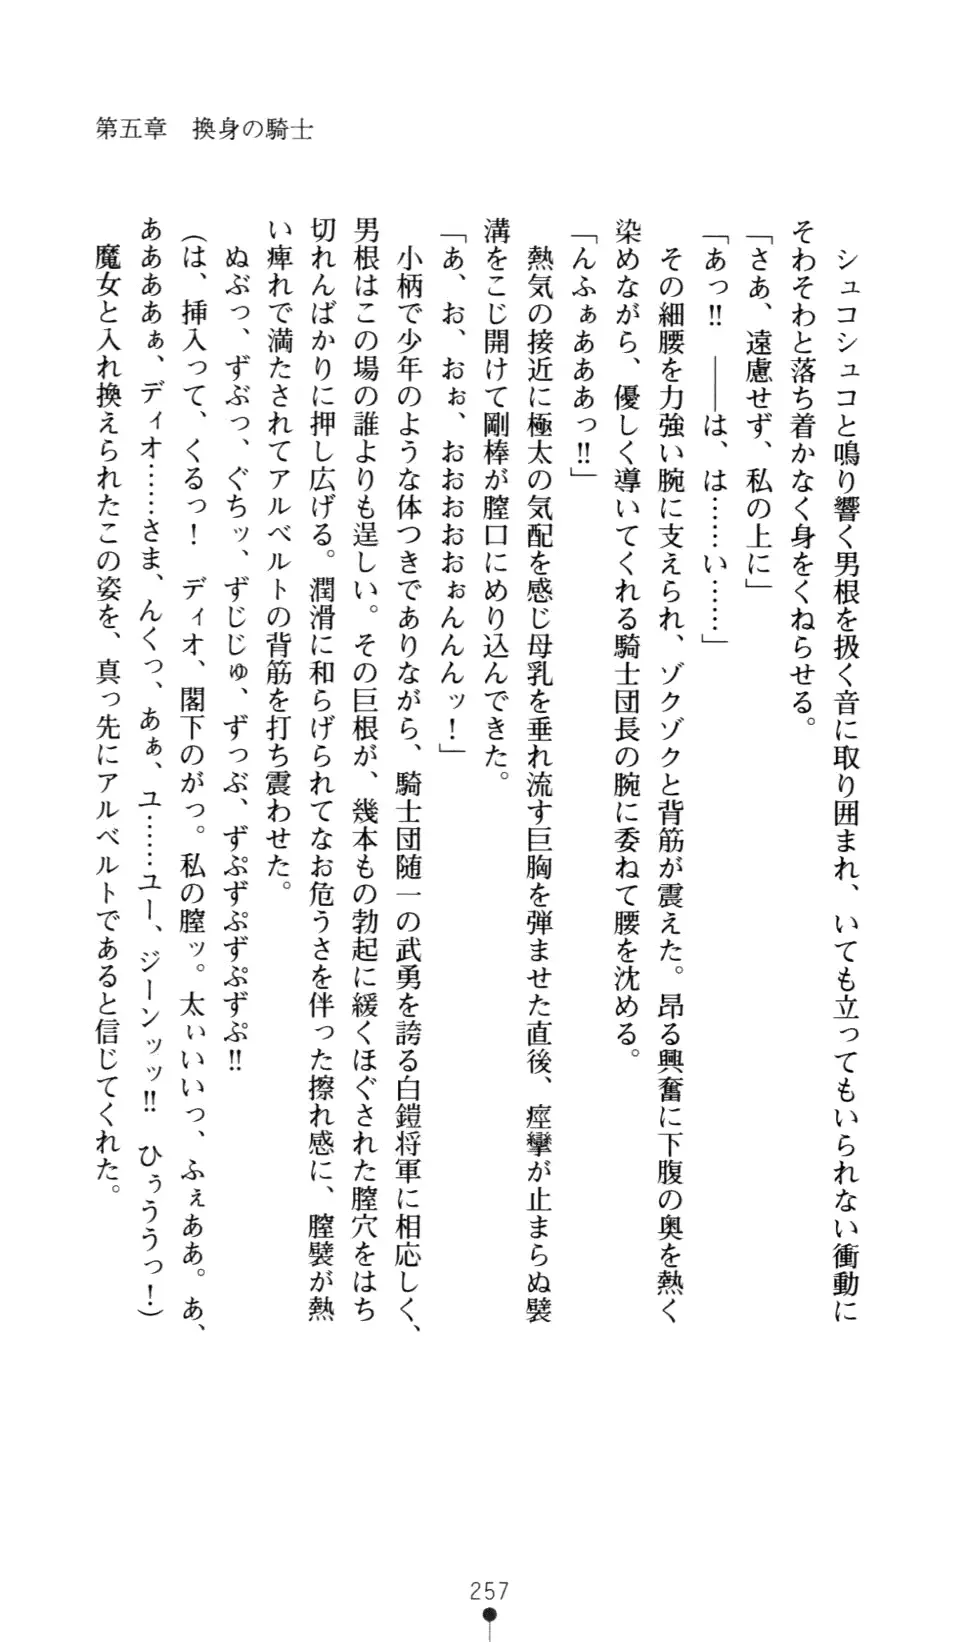 第五章　換身の騎士
　シュコシュコと鳴り響く男根を扱く音に取り囲まれ、いても立ってもいられない衝動に
そわそわと落ち着かなく身をくねらせる。
「さあ、遠慮せず、私の上に」
「あっ!!　――は、は……い……」
　その細腰を力強い腕に支えられ、ゾクゾクと背筋が震えた。昂る興奮に下腹の奥を熱く
染めながら、優しく導いてくれる騎士団長の腕に委ねて腰を沈める。
「んふぁあああっ!!」
　熱気の接近に極太の気配を感じ母乳を垂れ流す巨胸を弾ませた直後、痙攣が止まらぬ襞
溝をこじ開けて剛棒が膣口にめり込んできた。
「あ、お、おぉ、おおおおおぉんんんッ！」
　小柄で少年のような体つきでありながら、騎士団随一の武勇を誇る白鎧将軍に相応しく、
男根はこの場の誰よりも逞しい。その巨根が、幾本もの勃起に緩くほぐされた膣穴をはち
切れんばかりに押し広げる。潤滑に和らげられてなお危うさを伴った擦れ感に、膣襞が熱
い痺れで満たされてアルベルトの背筋を打ち震わせた。
　ぬぶっ、ずぶっ、ぐちッ、ずじじゅ、ずっぶ、ずぷずぷずぷずぷ!!
（は、挿入って、くるっ！　ディオ、閣下のがっ。私の膣ッ。太ぃいいっ、ふぇああ。あ、
ああああぁ、ディオ……さま、んくっ、あぁ、ユ……ユー、ジーンッッ!!　ひぅううっ！）
　魔女と入れ換えられたこの姿を、真っ先にアルベルトであると信じてくれた。
257